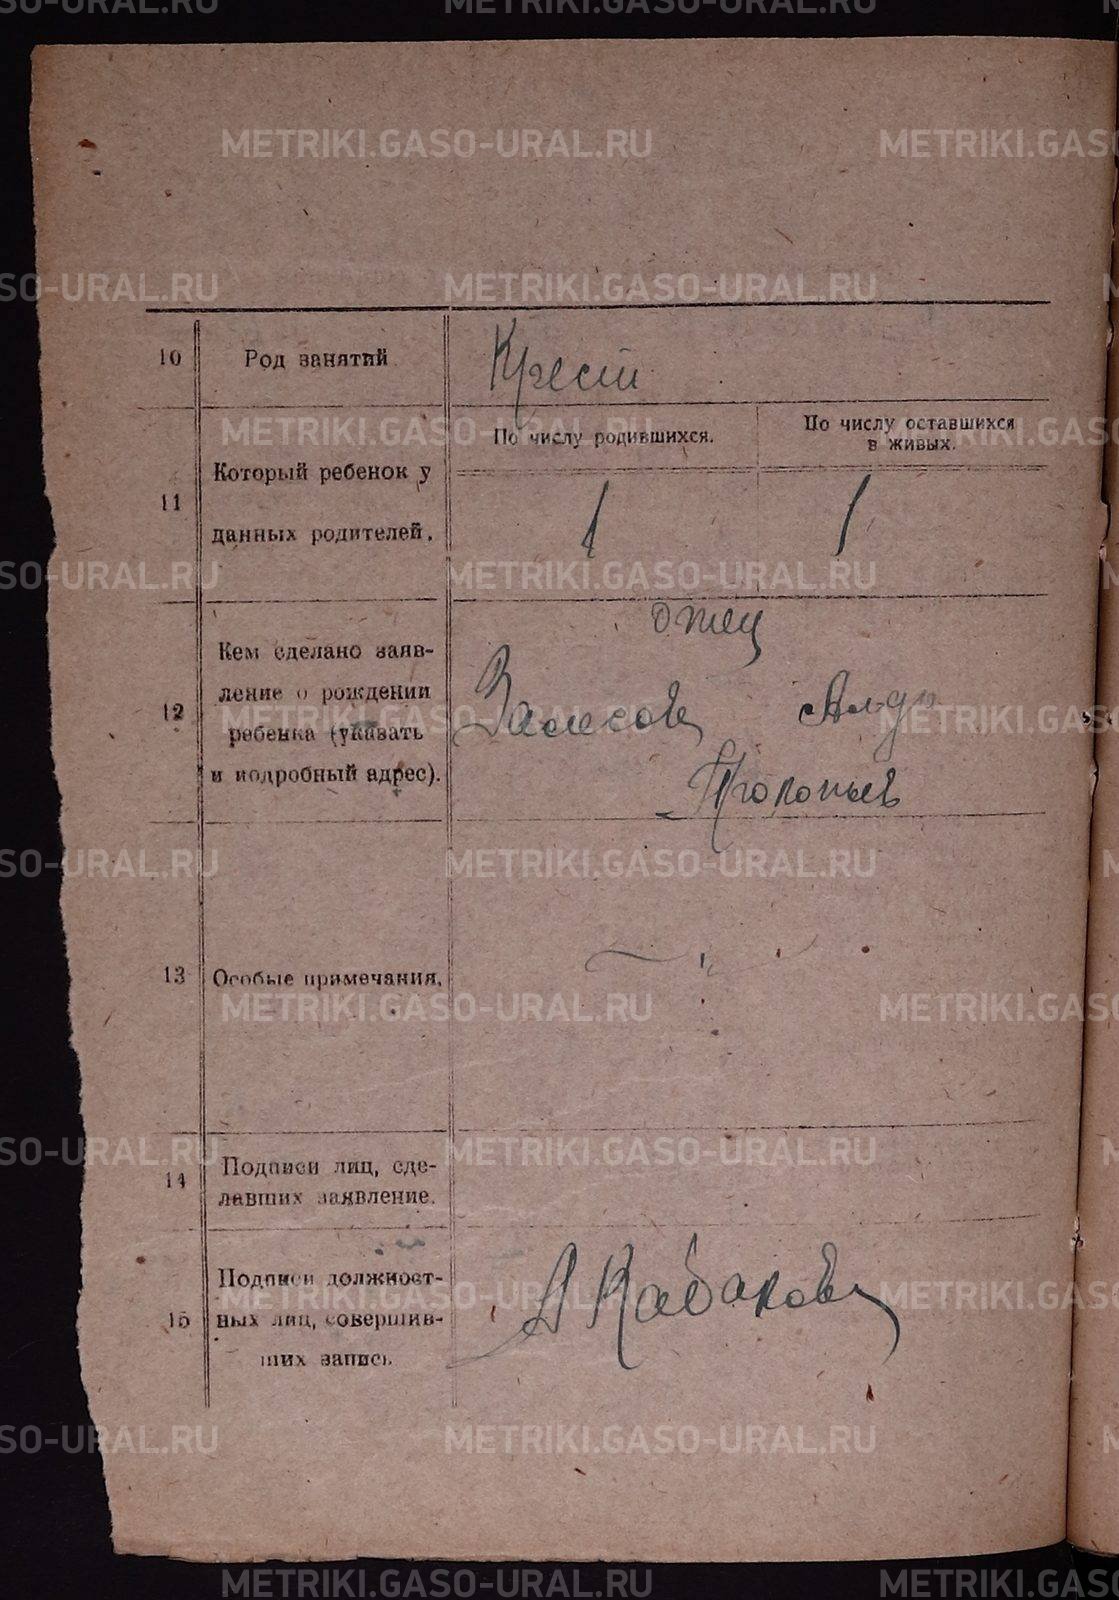 10
Род занятий
Крест
11
Который ребенок у
данных родителей.
По числу родившихся.
По числу оставшихся
в живых.
1
1
12
Кем сделано заяв-
ление о рождении
ребенка (указать
и подробный адрес).
отец
Залесов
Прокопьев
13
Особые примечания.
14
Подписи лиц, сде-
лавших заявление.
15
Подписи должност-
ных лиц, совершив-
ших запись.
А Кабаков
METRIKI.GASO-URAL.RU